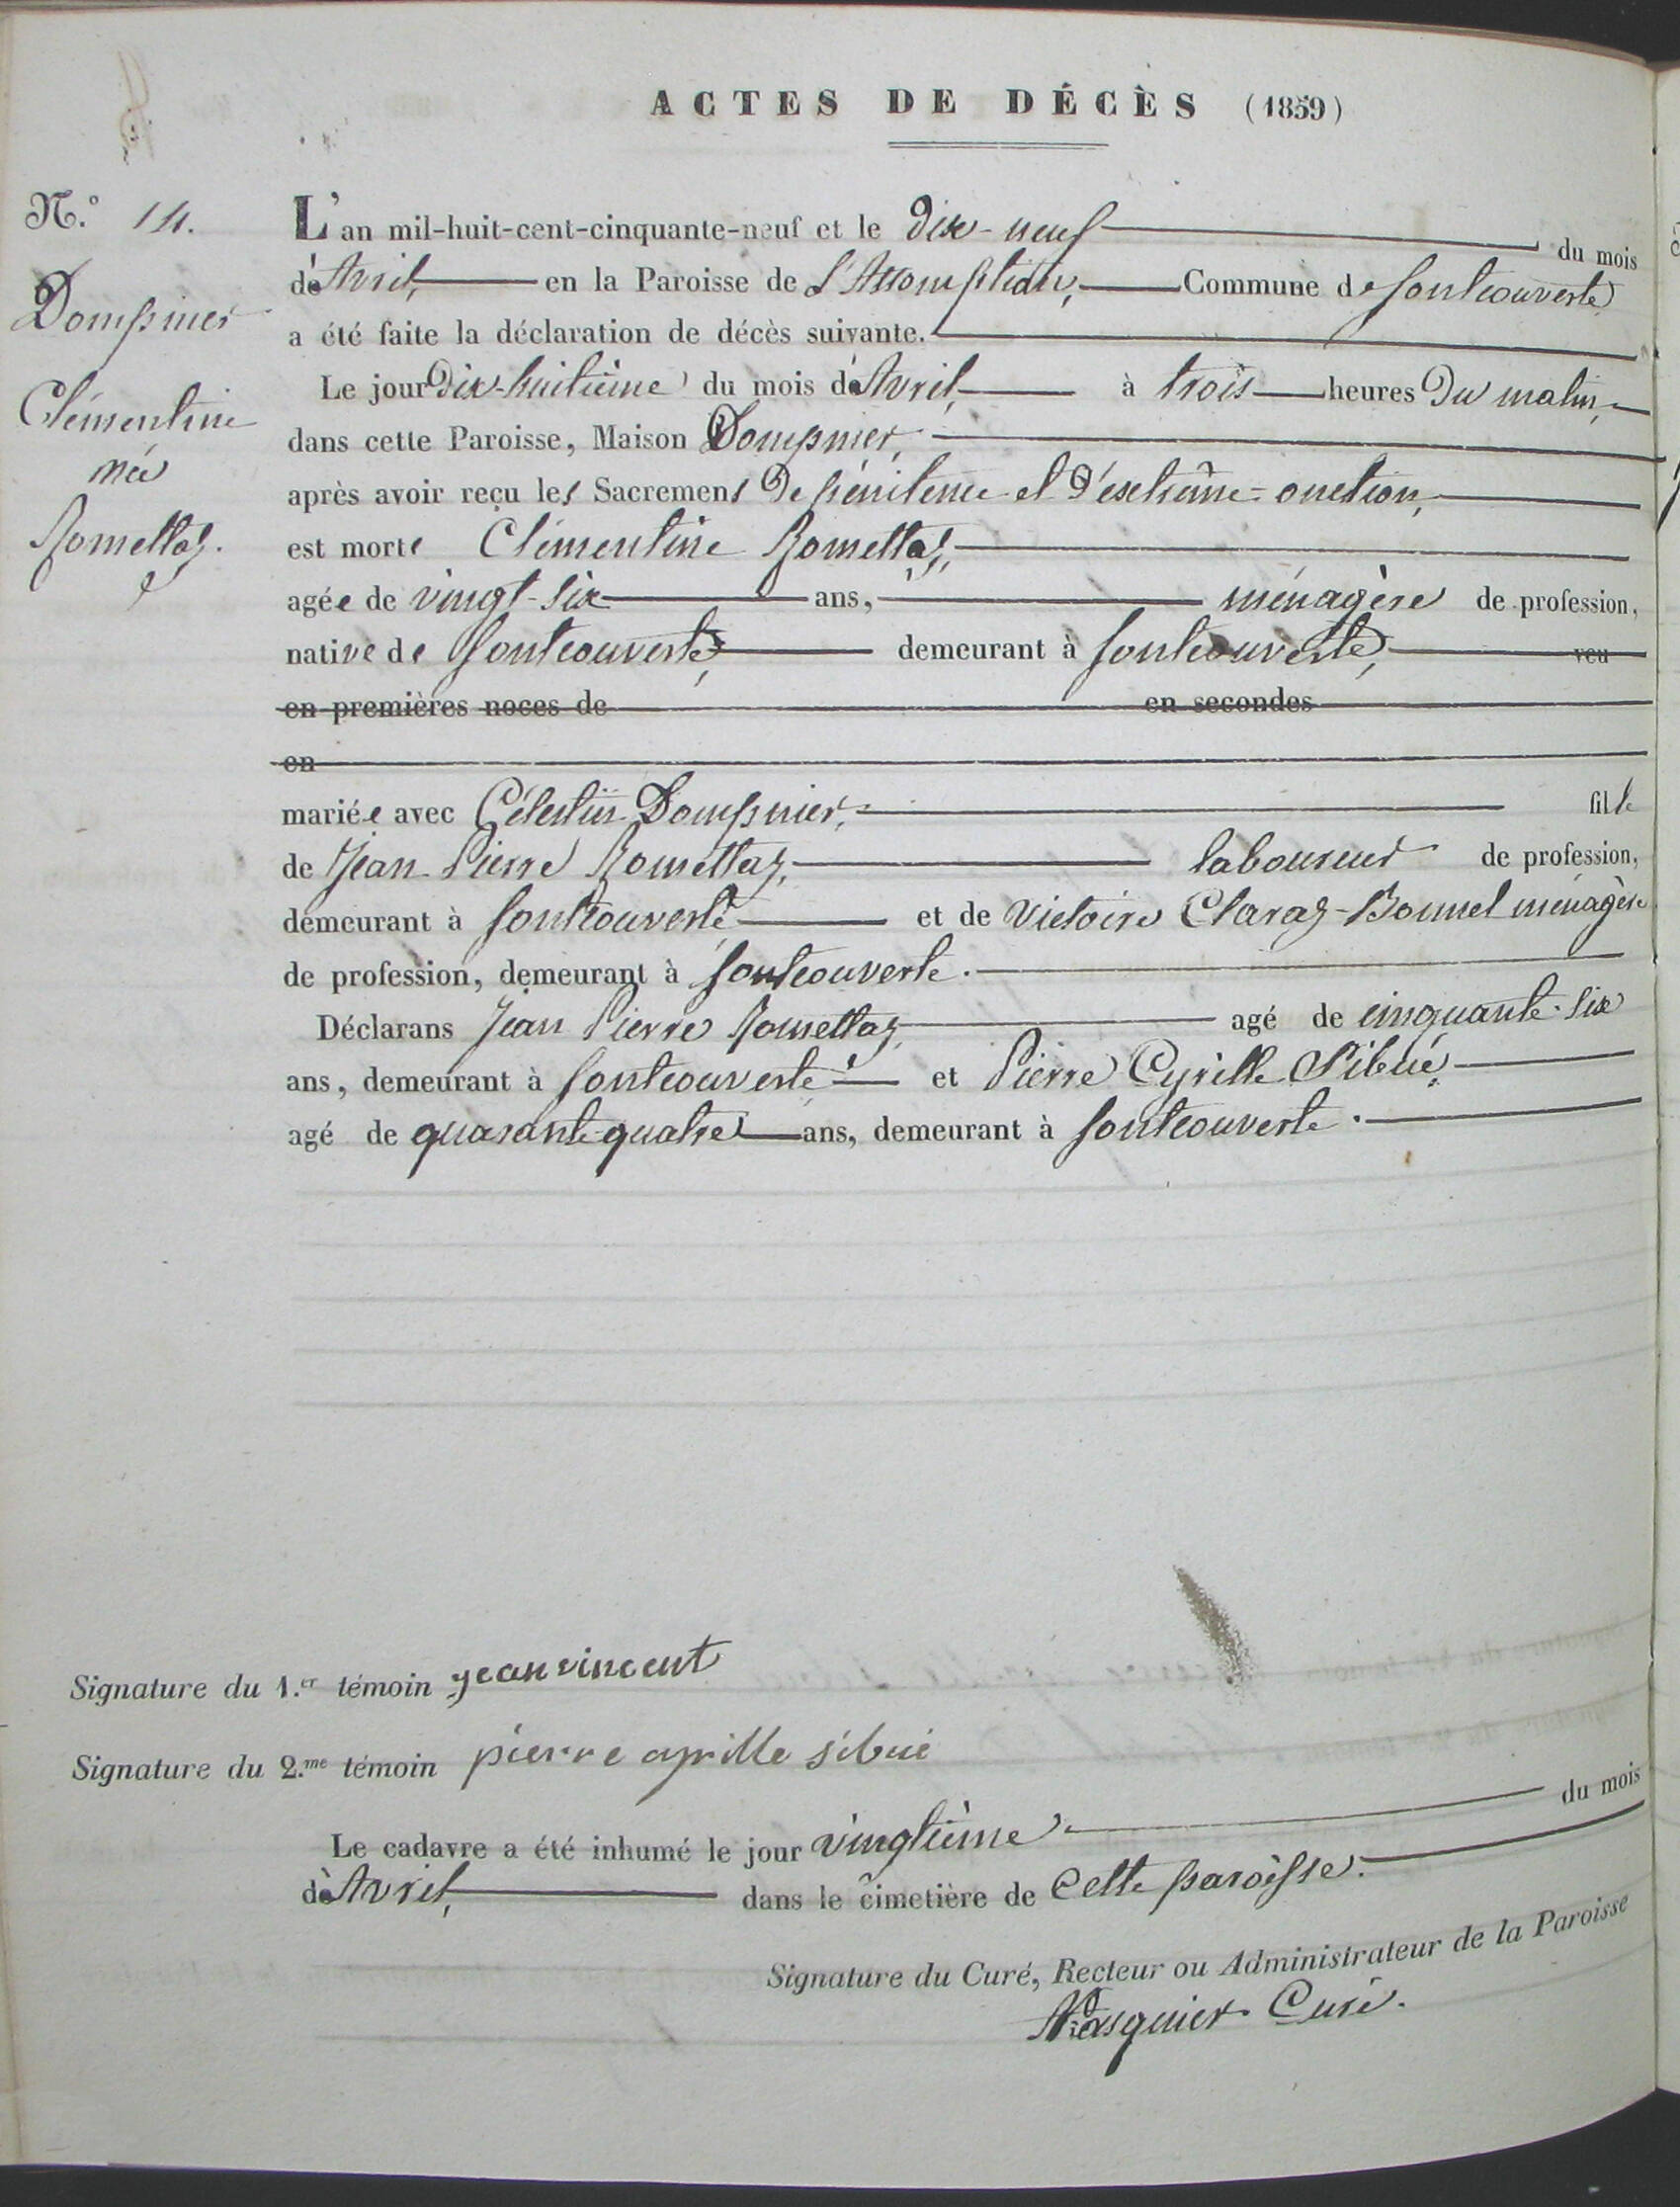 ACTES DE DÉCÈS (1859)
N.º 14.
Dompnier
Clémentine
née
Romettaz.
L'an mil-huit-cent-cinquante-neuf et le Dix-neuf du mois
d'Avril, en la Paroisse de L'Assomption, Commune de fontcouverte
a été faite la déclaration de décès suivante.
Le jour Dix-huitième du mois d'Avril, à trois heures Du matin,
dans cette Paroisse, Maison Dompnier,
après avoir reçu les Sacremens De pénitence et D'extrême-onction,
est morte Clémentine Romettaz,
agée de vingt-six ans, ménagère de profession,
native de fontcouverte, demeurant à fontcouverte, veu
en premières noces de en secondes
en
mariée avec Célestin Dompnier, fille
de Jean-Pierre Romettaz, laboureur de profession,
demeurant à fontcouverte et de Victoire Claraz-Bonnel ménagère
de profession, demeurant à fontcouverte.
Déclarans Jean Pierre Romettaz, agé de cinquante-six
ans, demeurant à fontcouverte et Pierre Cyrille Sibué,
agé de quarante-quatre ans, demeurant à fontcouverte.
Signature du 1.er témoin jean vincent
Signature du 2.me témoin pierre cyrille sibué
Le cadavre a été inhumé le jour vingtième du mois
d'Avril, dans le cimetière de Cette paroisse.
Signature du Curé, Recteur ou Administrateur de la Paroisse
Curé.